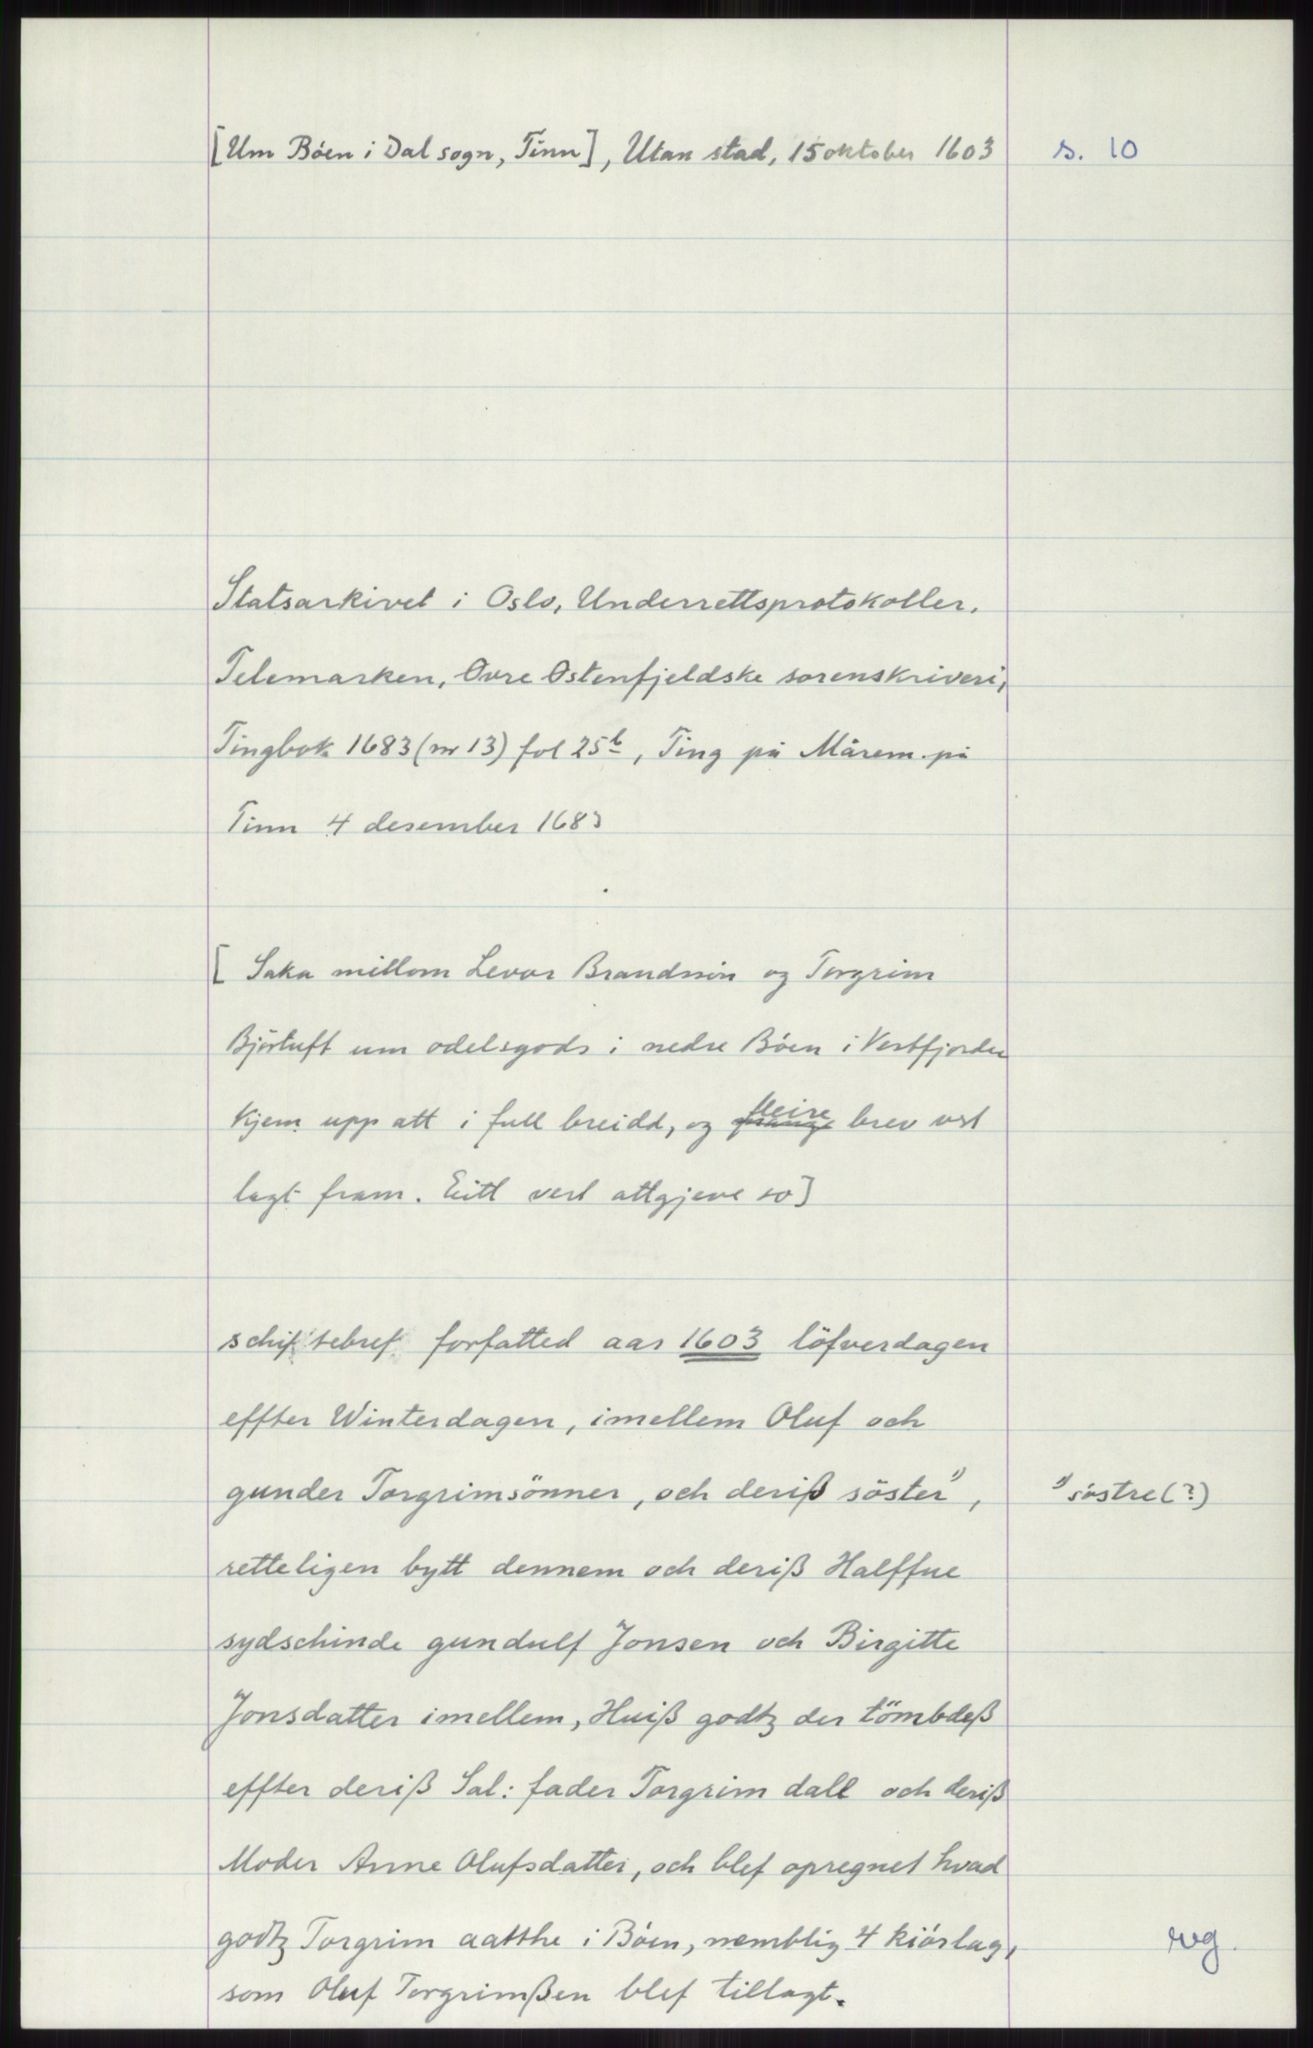 [Um Böen i Dal sogn, Tinn], Utan stad, 15 oktober 1603 s. 10
Statsarkivet i Oslo, Underrettsprotokoller.
Telemarken, Øvre Østenfjeldske sorenskriveri,
Tingbok 1683 (nr 13) fol 25b, Ting på Mårem på
Tinn 4 desember 1683
[Saka millom Levor Brandssön og Torgrim
Björtuft um odelsgods i nedre Böen i Vestfjorden
kjem upp att i full breidd, og fleire brev vert
lagt fram. Eitt vert attgjeve so]
schiftebref forfatted aar 1603 löfverdagen
effter Winterdagen, imellem Oluf och
gunder Torgrimsönner, och deriß söster 1), 1) söstre (?)
retteligen bytt dennem och deriß Halffue
sydschinde gundulf Jonsen och Birgitte
Jonsdatter imellem, Huiß godtz der tömbdeß
effter deriß Sal: fader Torgrim dall och deriß
Moder Anne Olufsdatter, och blef opregnet hvad
godtz Torgrim aatthe i Böen, nemblig 4 kiörlag, rvg.
som Oluf Torgrimßen blef tillagt.